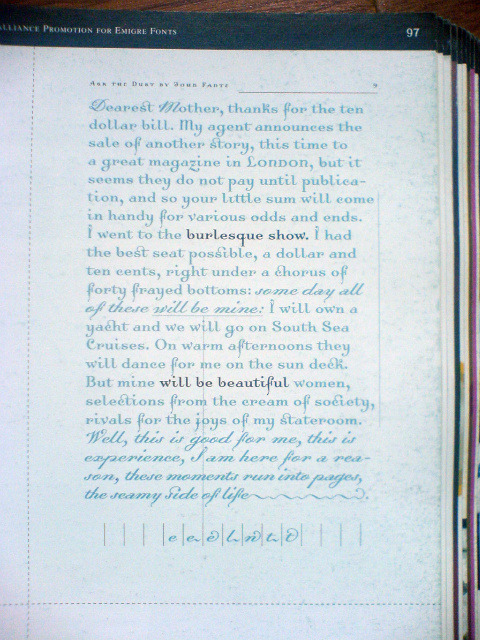 ALLIANCE PROMOTION FOR EMIGRE FONTS
97
ASK THE DUST BY JOHN FANTE
9
Dearest Mother, thanks for the ten
dollar bill. My agent announces the
sale of another story, this time to
a great magazine in LONDON, but it
seems they do not pay until publica-
tion, and so your little sum will come
in handy for various odds and ends.
I went to the burlesque show. I had
the best seat possible, a dollar and
ten cents, right under a chorus of
forty frayed bottoms: some day all
of these will be mine: I will own a
yacht and we will go on South Sea
Cruises. On warm afternoons they
will dance for me on the sun deck.
But mine will be beautiful women,
selections from the cream of society,
rivals for the joys of my stateroom.
Well, this is good for me, this is
experience, I am here for a rea-
son, these moments run into pages,
the seamy side of life